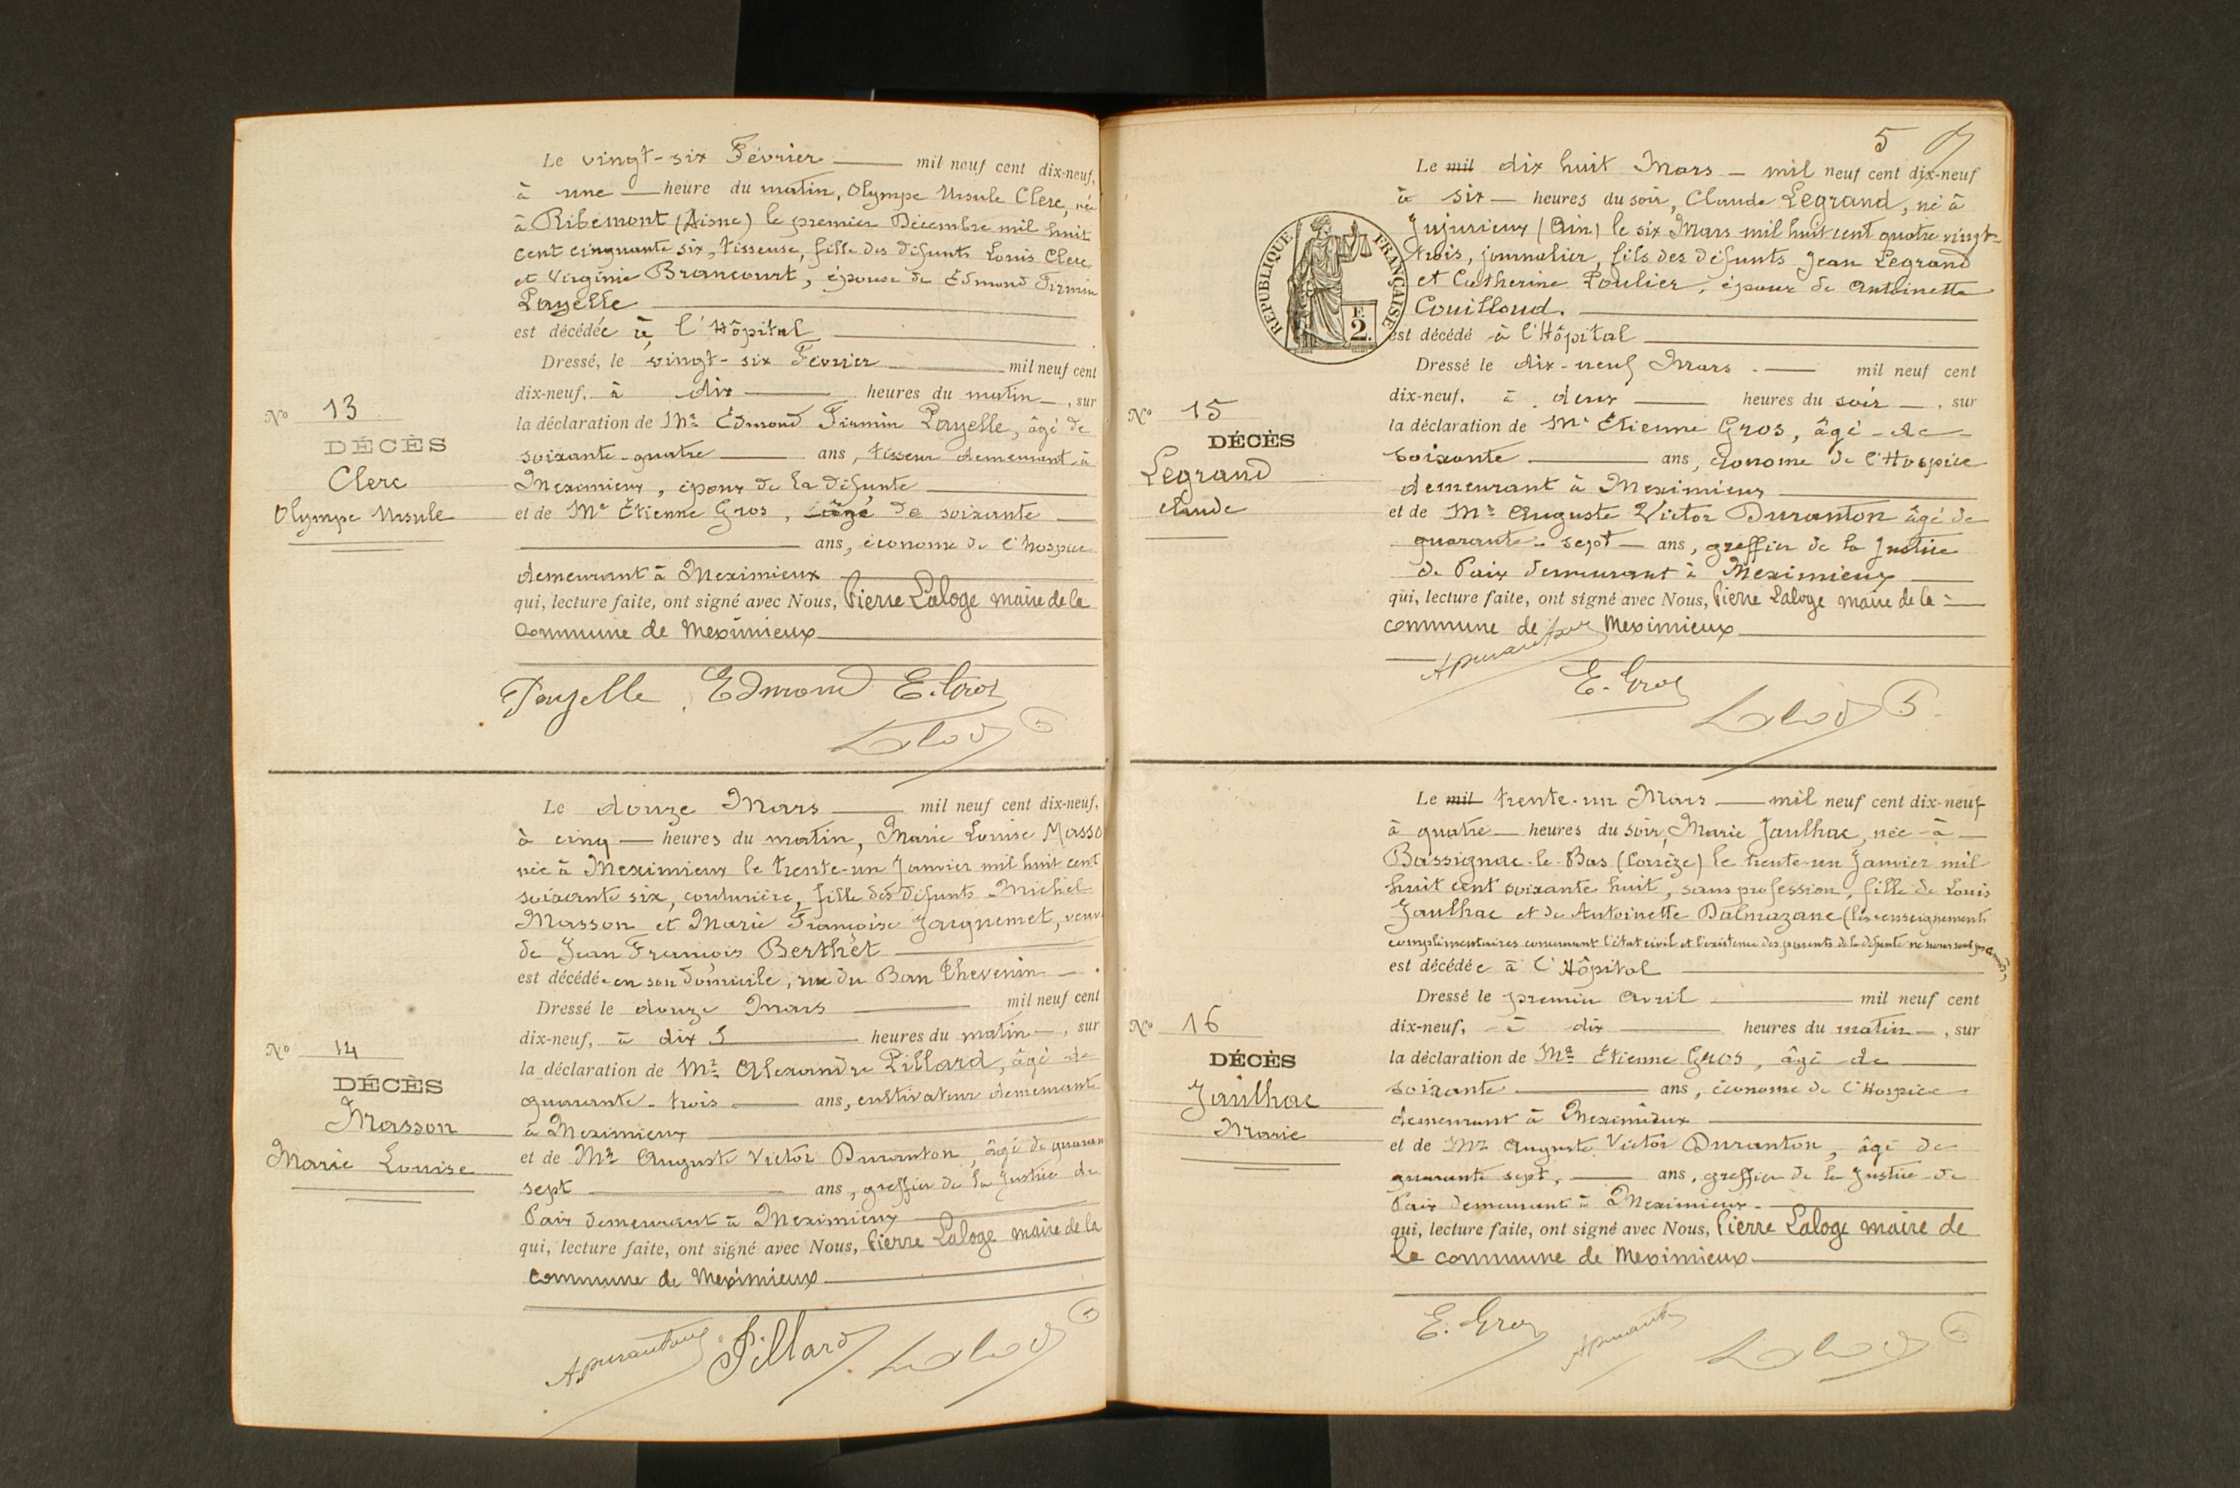 Le vingt-six Février mil neuf cent dix-neuf,
à une heure du matin, Olympe Ursule Clerc, née
à Ribemont (Aisne) le premier Décembre mil huit
cent cinquante six, tisseuse, fille des défunts Louis Clerc
et Virginie Brancourt, épouse de Edmond Firmin
Payelle
est décédée à l'Hôpital
Dressé, le vingt-six Février mil neuf cent
dix-neuf, à dix heures du matin, sur
la déclaration de Mr Edmond Firmin Payelle, âgé de
soixante-quatre ans, tisseur demeurant à
Meximieux, époux de la défunte
et de Mr Étienne Gros, âgé de soixante
ans, économe de l'hospice
demeurant à Meximieux
qui, lecture faite, ont signé avec Nous, Pierre Laloge maire de la
commune de Meximieux
Payelle Edmond E. Gros
Laloge
N° 13
DÉCÈS
Clerc
Olympe Ursule
Le douze Mars mil neuf cent dix-neuf,
à cinq heures du matin, Marie Louise Masso
née à Meximieux le trente-un Janvier mil huit cent
soixante six, couturière, fille des défunts Michel
Masson et Marie Françoise Jacquemet, veuve
de Jean François Berthet
est décédée en son domicile, rue du Ban Thevenin
Dressé le douze Mars mil neuf cent
dix-neuf, à dix heures du matin, sur
la déclaration de Mr Alexandre Pillard, âgé de
quarante-trois ans, cultivateur demeurant
à Meximieux
et de Mr Auguste Victor Duranton, âgé de quaran
sept ans, greffier de la Justice de
Paix demeurant à Meximieux
qui, lecture faite, ont signé avec Nous, Pierre Laloge maire de la
commune de Meximieux
A Duranton Pillard Laloge
N° 14
DÉCÈS
Masson
Marie Louise
5
Le mil dix huit Mars mil neuf cent dix-neuf
à six heures du soir, Claude Legrand, né à
Jujurieux (Ain) le six Mars mil huit cent quatre vingt-
trois, journalier, fils des défunts Jean Legrand
et Catherine Poulier, époux de Antoinette
Couilloud.
est décédé à l'Hôpital
RÉPUBLIQUE FRANÇAISE
2
Dressé le dix-neuf Mars mil neuf cent
dix-neuf, à deux heures du soir, sur
la déclaration de Mr Étienne Gros, âgé de
soixante ans, économe de l'Hospice
demeurant à Meximieux
et de Mr Auguste Victor Duranton âgé de
quarante-sept ans, greffier de la Justice
de Paix demeurant à Meximieux
qui, lecture faite, ont signé avec Nous, Pierre Laloge maire de la
commune de Meximieux
A Duranton
E. Gros
Laloge
N° 15
DÉCÈS
Legrand
Claude
Le mil trente-un Mars mil neuf cent dix-neuf
à quatre heures du soir, Marie Jaulhac, née à
Bassignac-le-Bas (Corrèze) le trente-un Janvier mil
huit cent soixante huit, sans profession, fille de Louis
Jaulhac et de Antoinette Dalmazane (les renseignements
complémentaires concernant l'état civil et l'existence des parents de la défunte ne nous sont pas
est décédée à l'Hôpital
Dressé le premier Avril mil neuf cent
dix-neuf, à dix heures du matin, sur
la déclaration de Mr Étienne Gros, âgé de
soixante ans, économe de l'Hospice
demeurant à Meximieux
et de Mr Auguste Victor Duranton, âgé de
quarante sept, ans, greffier de la Justice de
Paix demeurant à Meximieux
qui, lecture faite, ont signé avec Nous, Pierre Laloge maire de
la commune de Meximieux
E. Gros A Duranton Laloge
N° 16
DÉCÈS
Jaulhac
Marie